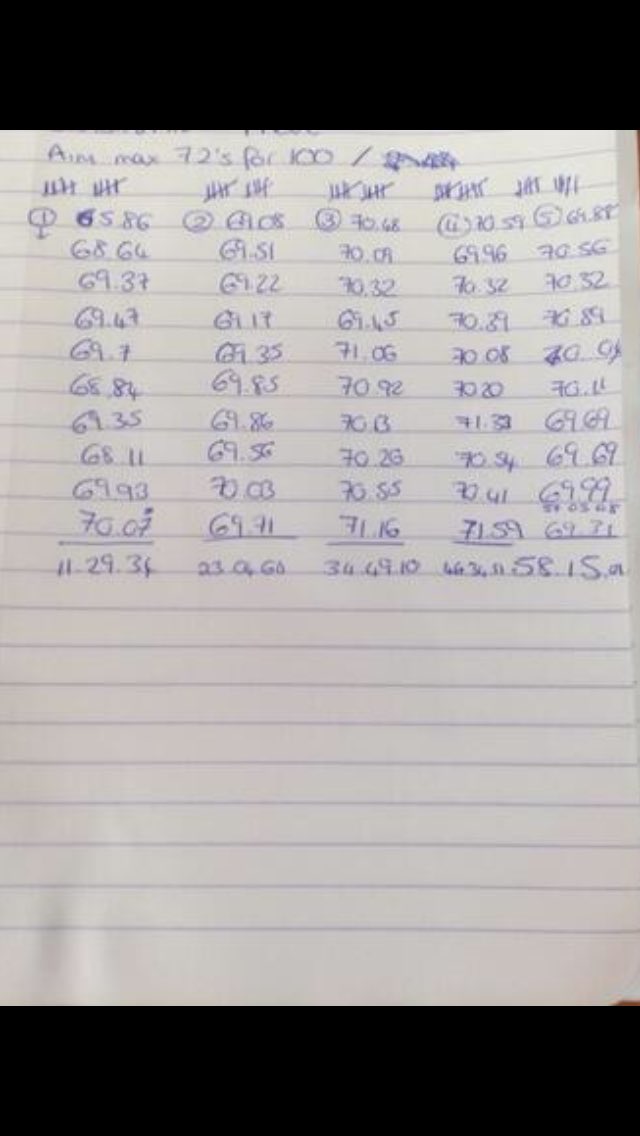 Aim max 72's for 100 /
① 65.86 ② 69.08 ③ 70.48 ④ 70.59 ⑤ 69.88
68.64 69.51 70.09 69.96 70.56
69.37 69.22 70.32 70.32 70.32
69.47 69.17 69.45 70.89 70.89
69.7 69.35 71.06 70.08
68.84 69.85 70.92 70.20 70.11
69.35 69.86 70.13 71.33 69.69
68.11 69.56 70.26 70.54 69.69
69.93 70.03 70.55 70.41 69.99
70.07 69.71 71.16 71.59 69.31
11.29.34 34.49.10